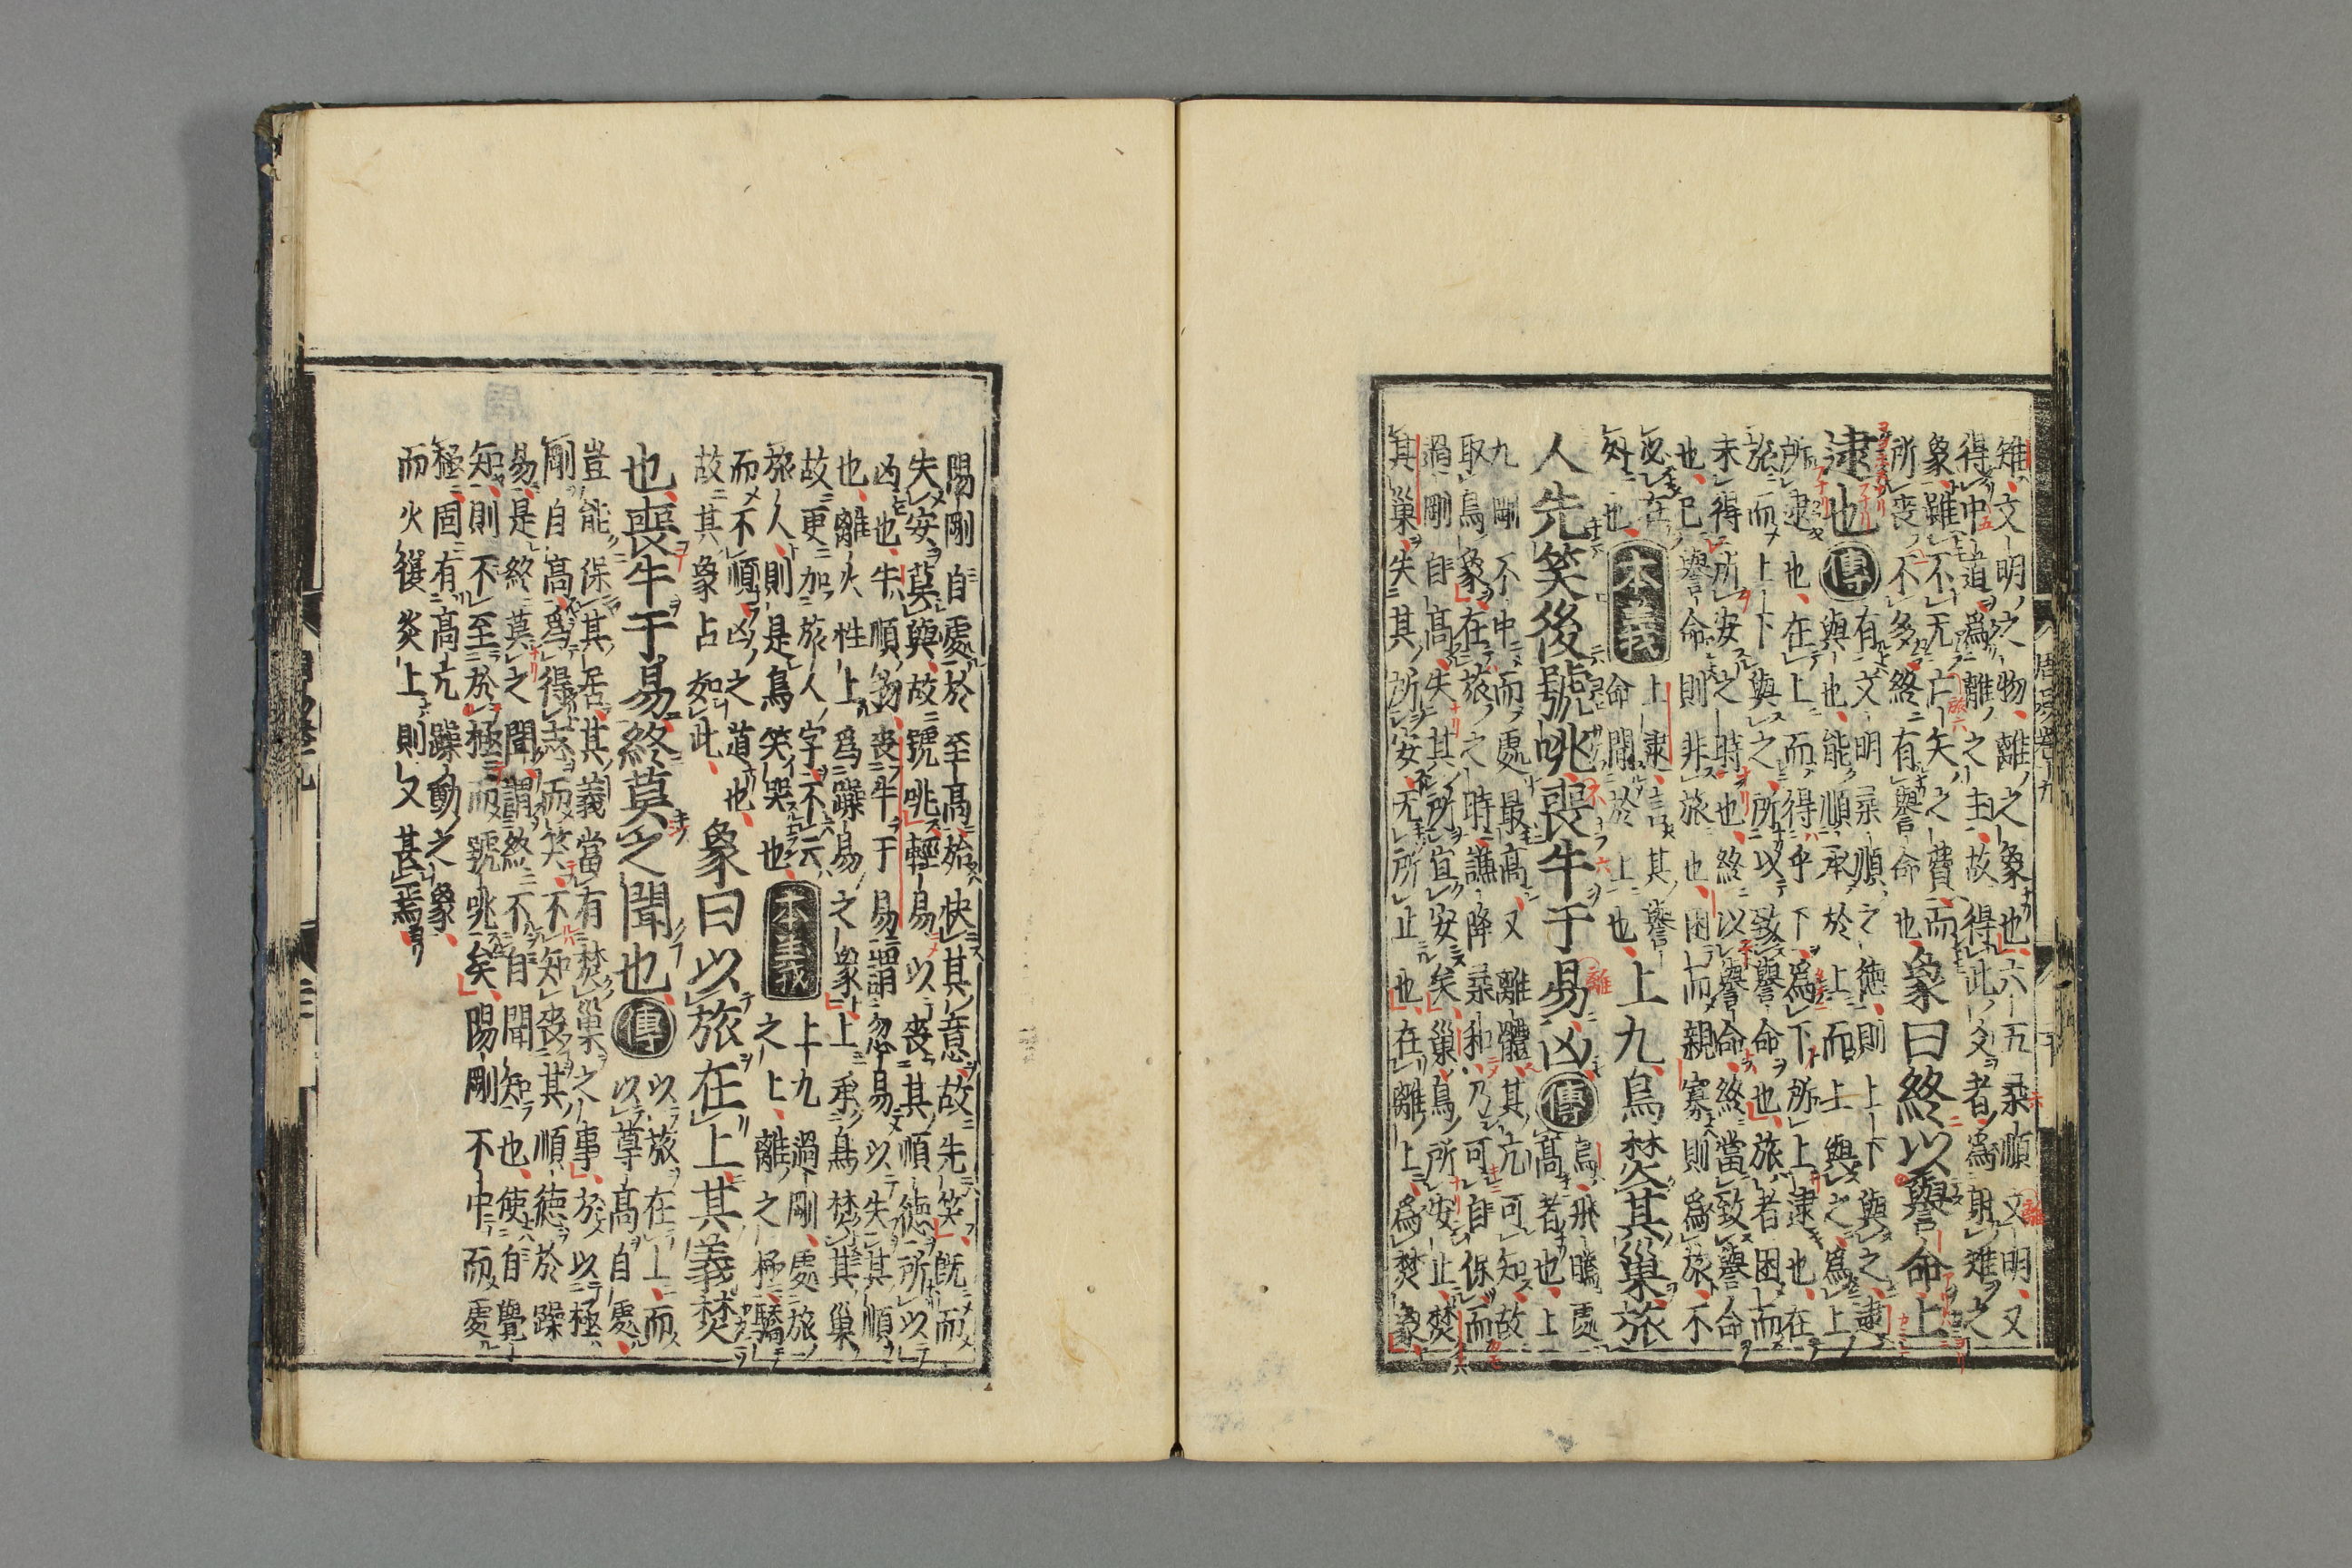 周易卷九
雉、文明之物、離之象也、六五柔順文明、又
得中道、爲離之主、故得此爻者、爲射雉之
象、雖不无亡矢之費、而
所喪不多、終有譽命也、
象曰終以譽命上
逮也
傳
有文明柔順之德、則上下與之、逮
與也、能順承於上而上與之、爲上
所逮也、在上而得乎下、爲下所上逮也、在
旅而上下與之、所以致譽命也、旅者困而
未得所安之時也、終以譽命、終當致譽命
也、已譽命則非旅也、困而親寡則爲旅、不
必在
外也、
本義
上逮、言其譽
命聞於上也、
上九鳥焚其巢旅
人先笑後號咷喪牛于易凶
傳
鳥、飛騰處
高者也、上
九剛不中而處最高、又離體、其亢可知、故
取鳥象、在旅之時、謙降柔和、乃可自保、而
過剛自高、失其所宜安矣、巢鳥所安止、焚
其巢、失其所安、无所止也、在離上、爲焚象、
陽剛自處於至高、始快其意、故先笑、旣而
失安莫與、故號咷、輕易以喪其順德、所以
凶也、牛順物、喪牛于易、謂忽易以失其順
也、離火性上、爲躁易之象、上承鳥焚其巢、
故更加旅人字、不云
旅人、則是鳥笑哭也、
本義
上九過剛、處旅
之上、離之極、驕
而不順、凶之道也、
故其象占如此、
象曰以旅在上其義焚
也、喪牛于易終莫之聞也
傳
以旅在上、而
以尊高自處、
豈能保其居、其義當有焚巢之事、方以極
剛自高、爲得志而笑、不知喪其順德於躁
易、是終莫之聞、謂終不自聞知也、使自覺
知、則不至於極而號咷矣、陽剛不中而處
極、固有高亢躁動之象、
而火復炎上、則又甚焉